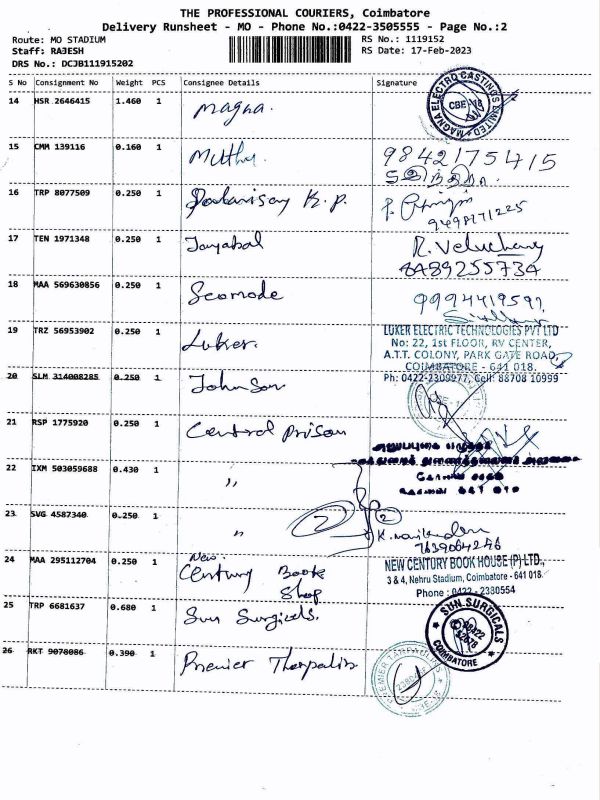 THE PROFESSIONAL COURIERS, Coimbatore
Delivery Runsheet - MO - Phone No.:0422-3505555 - Page No.:2
Route: MO STADIUM
RS No.: 1119152
Staff: RAJESH
RS Date: 17-Feb-2023
DRS No.: DCJB111915202
S No Consignment No Weight PCS Consignee Details Signature
14 HSR 2646415 1.460 1 Magna. MAGNA ELECTRO CASTINGS LIMITED CBE-18
15 CMM 139116 0.160 1 Muthu 9842175415
16 TRP 8077509 0.250 1 K.P. 9498171225
17 TEN 1971348 0.250 1 Jayabal R. Veluchamy
8489255734
18 MAA 569630856 0.250 1 Seomode
19 TRZ 56953902 0.250 1 Luker. LUKER ELECTRIC TECHNOLOGIES PVT LTD
No: 22, 1st FLOOR, RV CENTER,
A.T.T. COLONY, PARK GATE ROAD,
COIMBATORE - 641 018.
Ph: 0422-2309977, Cell: 88708 10999
20 SLM 314008285 0.250 1 Johnson
21 RSP 1775920 0.250 1 Central Prison
22 IXM 503059688 0.430 1 "
23 SVG 4587340 0.250 1 " 2 2
24 MAA 295112704 0.250 1 New Century Book Shop NEW CENTURY BOOK HOUSE (P) LTD.,
3 & 4, Nehru Stadium, Coimbatore - 641 018.
Phone : 0422 - 2380554
25 TRP 6681637 0.680 1 Sun Surgicals. SUN SURGICALS COIMBATORE
26 RKT 9078086 0.390 1 Premier Tharpalin PREMIER TARPAULINS